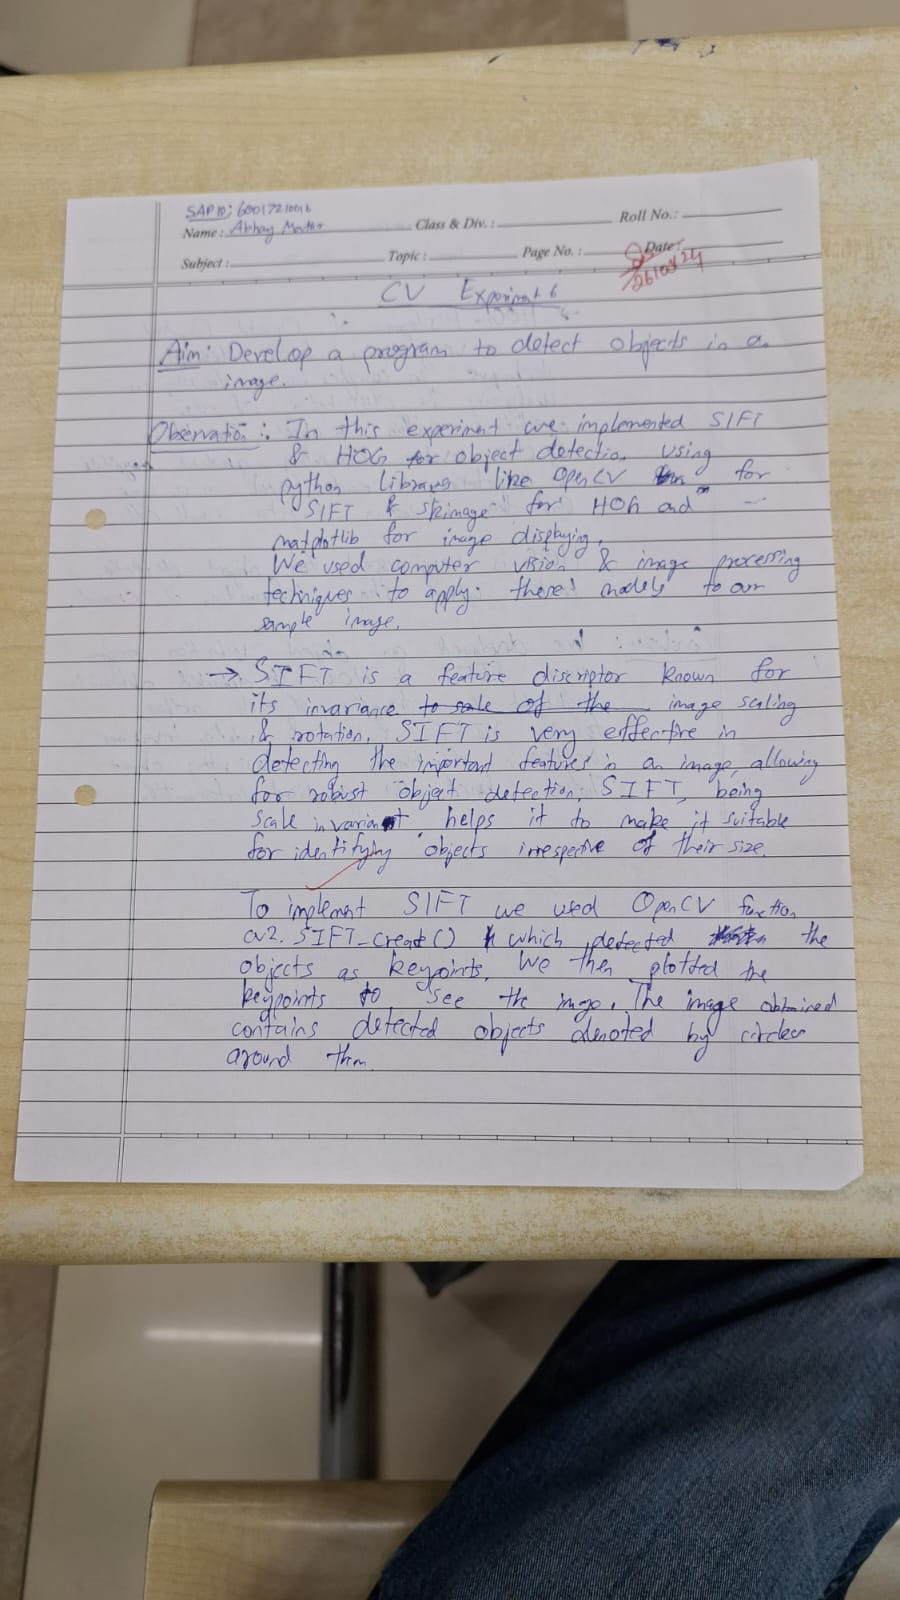 SAP ID: 60017210016
Name: Abhay Mathur Class & Div.: Roll No.:
Subject: Topic: Page No.: Date:
26/03/24
CV Experiment 6
Aim: Develop a program to detect objects in a
image.
Observation: In this experiment we implemented SIFT
& HOG for object detection using
python library like OpenCV for
SIFT & "skimage" for HOG and
matplotlib for image displaying.
We used computer vision & image processing
techniques to apply these models to our
sample image.
→ SIFT is a feature discriptor known for
its invariance to sale of the image scaling
& rotation. SIFT is very effective in
detecting the important features in an image, allowing
for robust object detection. SIFT, being
scale invariant, helps it to make it suitable
for identifying objects irrespective of their size.
To implement SIFT we used OpenCV function
cv2.SIFT_Create() which detected the
objects as keypoints. We then plotted the
keypoints to see the image. The image obtained
contains detected objects denoted by circles
around them.